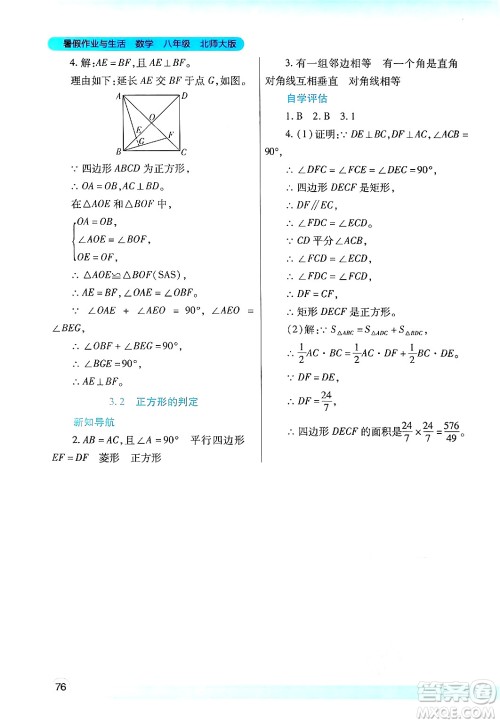 暑假作业与生活 数学 八年级 北师大版
4. 解:AE=BF,且 AE⊥BF.
理由如下:延长 AE 交 BF 于点 G,如图.
A D
O
E F
G
B C
∵ 四边形 ABCD 为正方形,
∴ OA=OB,AC⊥BD.
在△AOE 和△BOF 中,
OA=OB,
∠AOE=∠BOF,
OE=OF,
∴ △AOE≌△BOF(SAS),
∵ ∠OAE+∠AEO=90°,∠AEO=
∠BEG,
∴ ∠OBF+∠BEG=90°,
∴ ∠BGE=90°,
∴ AE⊥BF.
3.2 正方形的判定
新知导航
2. AB=AC,且∠A=90° 平行四边形
EF=DF 菱形 正方形
3. 有一组邻边相等 有一个角是直角
对角线互相垂直 对角线相等
自学评估
1. B 2. B 3. 1
4. (1)证明:∵ DE⊥AC,DF⊥BC,∠ACB=
90°,
∴ ∠DFC=∠FCE=∠DEC=90°,
∴ 四边形 DECF 是矩形,
∴ DF∥EC,
∴ ∠FDC=∠ECD.
∵ CD 平分∠ACB,
∴ ∠FCD=∠ECD,
∴ ∠FDC=∠FCD,
∴ DF=CF,
∴ 矩形 DECF 是正方形.
(2)解:∵ S△ABC=S△ADC+S△BDC,
∴ 1/2 AC·BC=1/2 AC·DE+1/2 BC·DF.
∵ DF=DE,
∴ DE=24/7,
∴ 四边形 DECF 的面积是24/7×24/7=576/49.
76